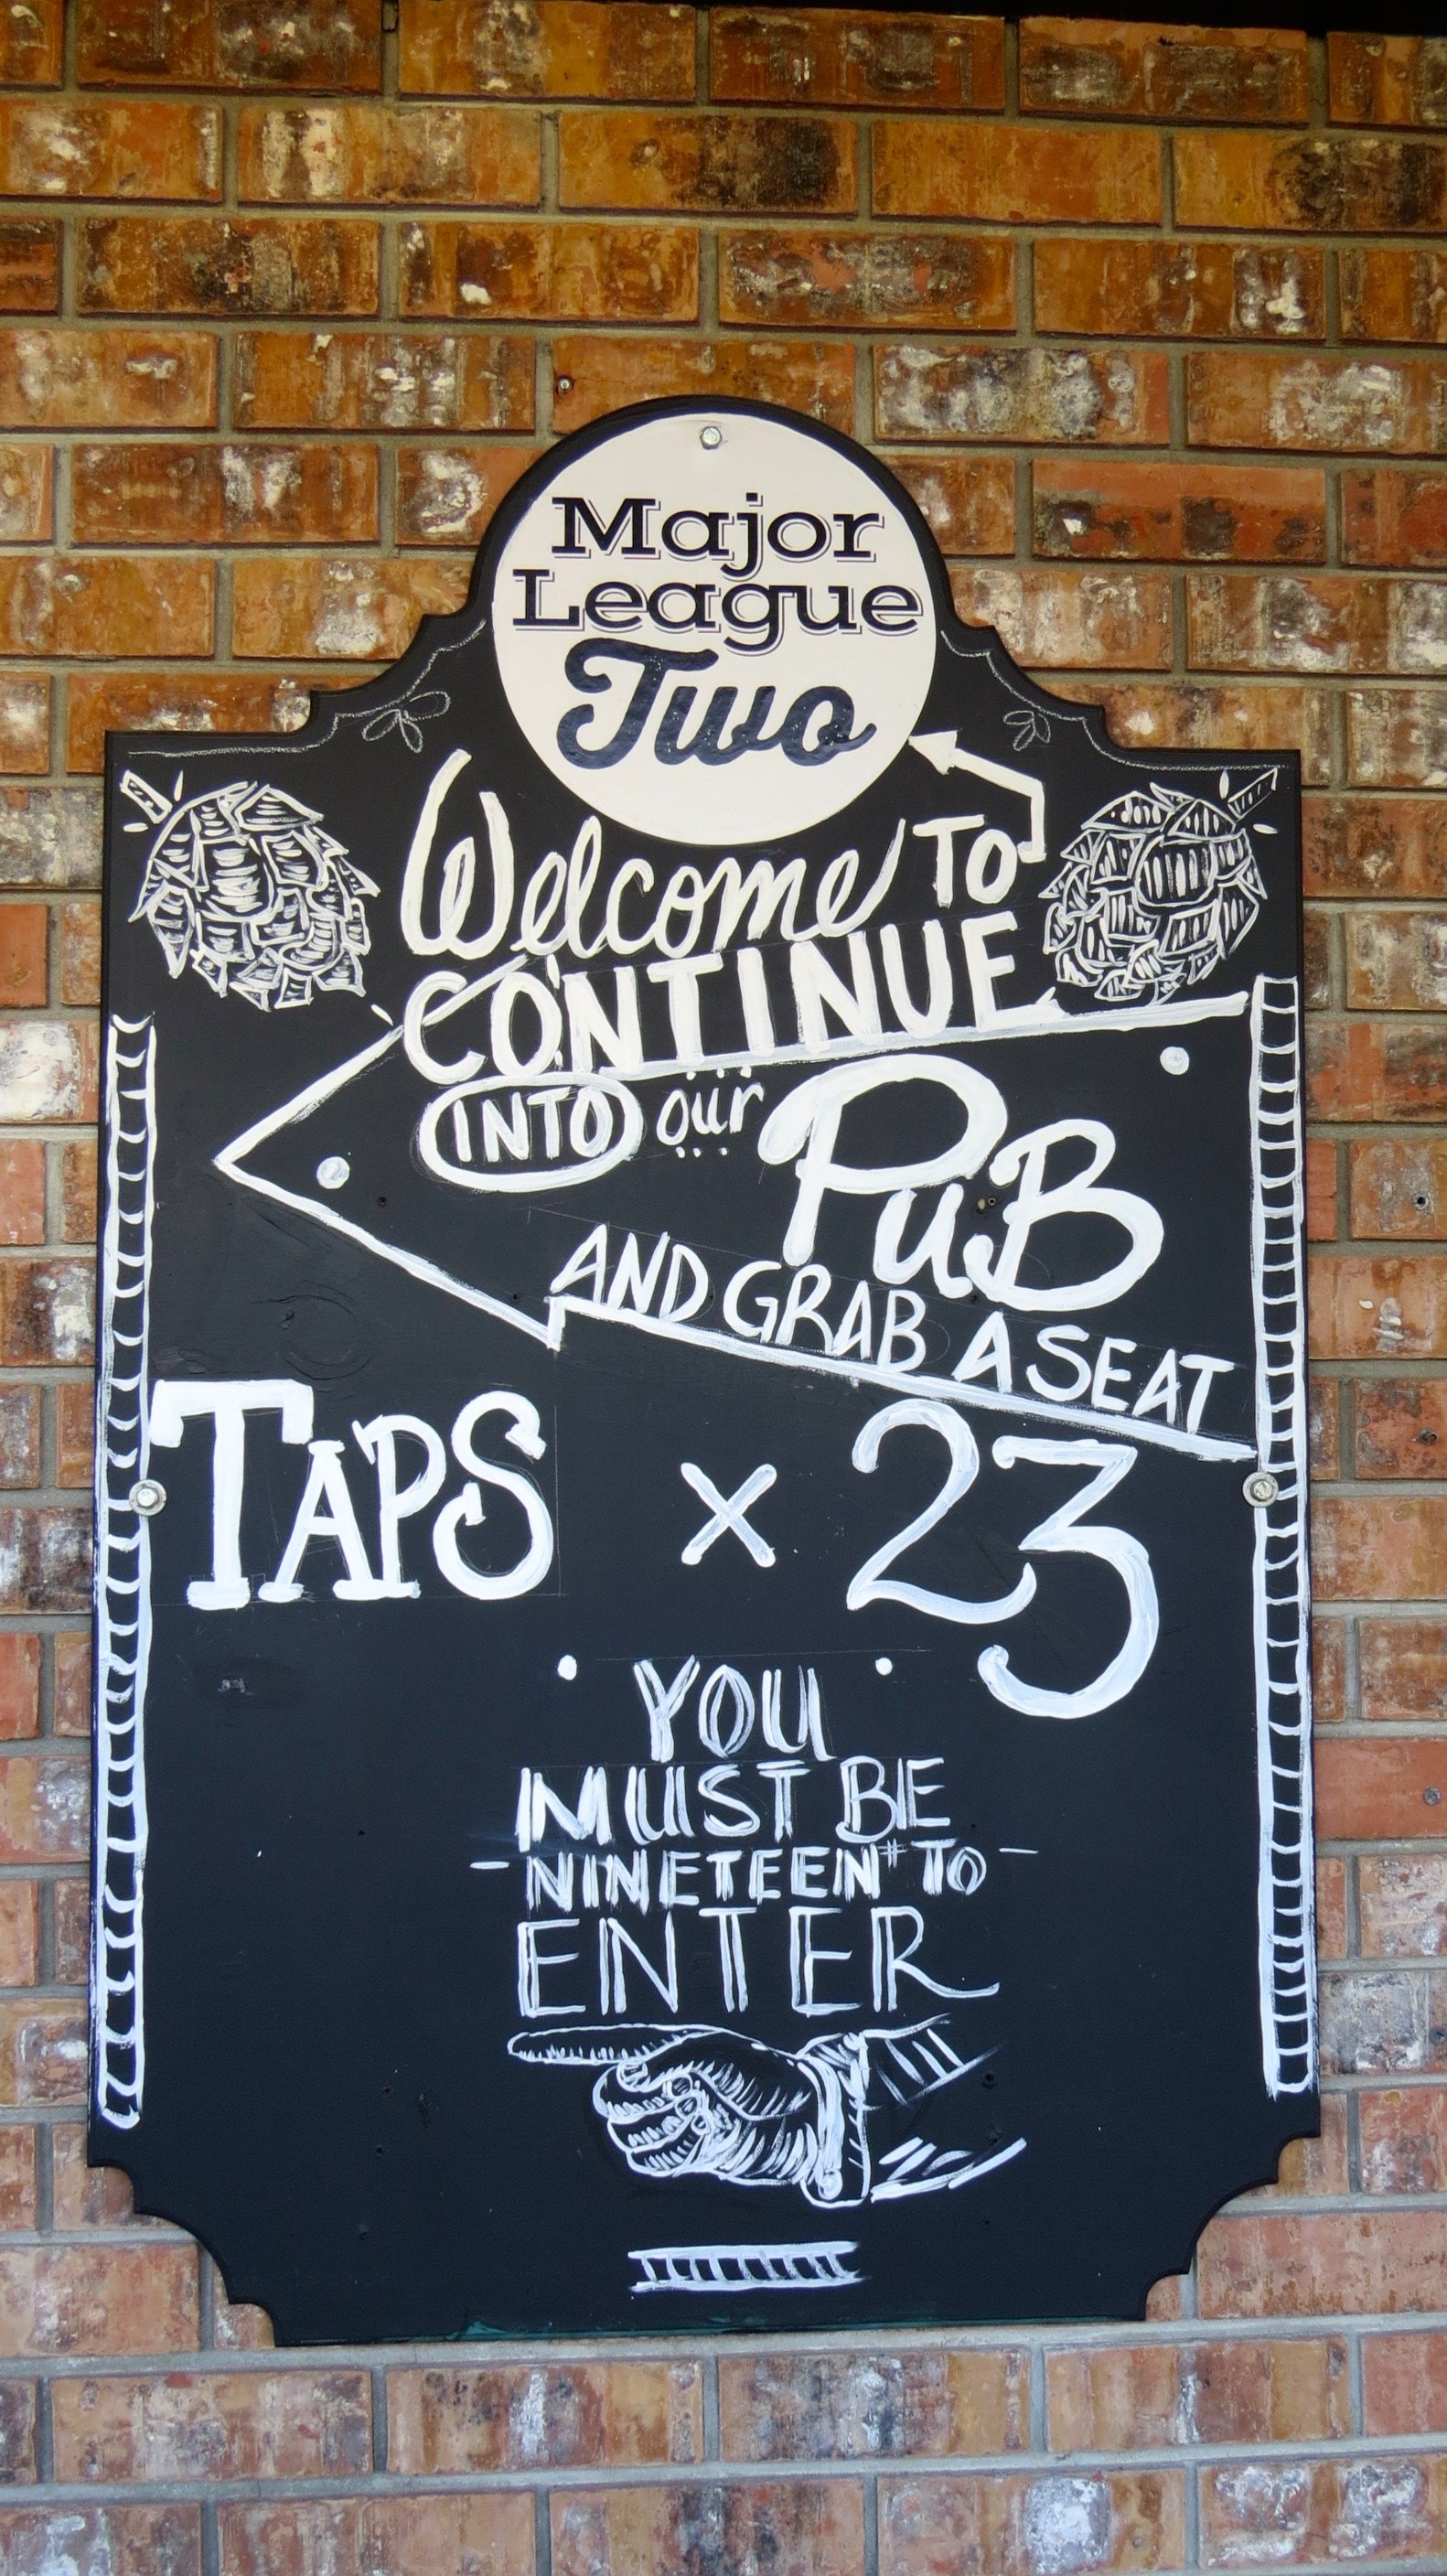 Major
League
Two
Welcome TO
CONTINUE
INTO our PuB
AND GRAB A SEAT
TAPS x 23
YOU
MUST BE
NINETEEN TO
ENTER